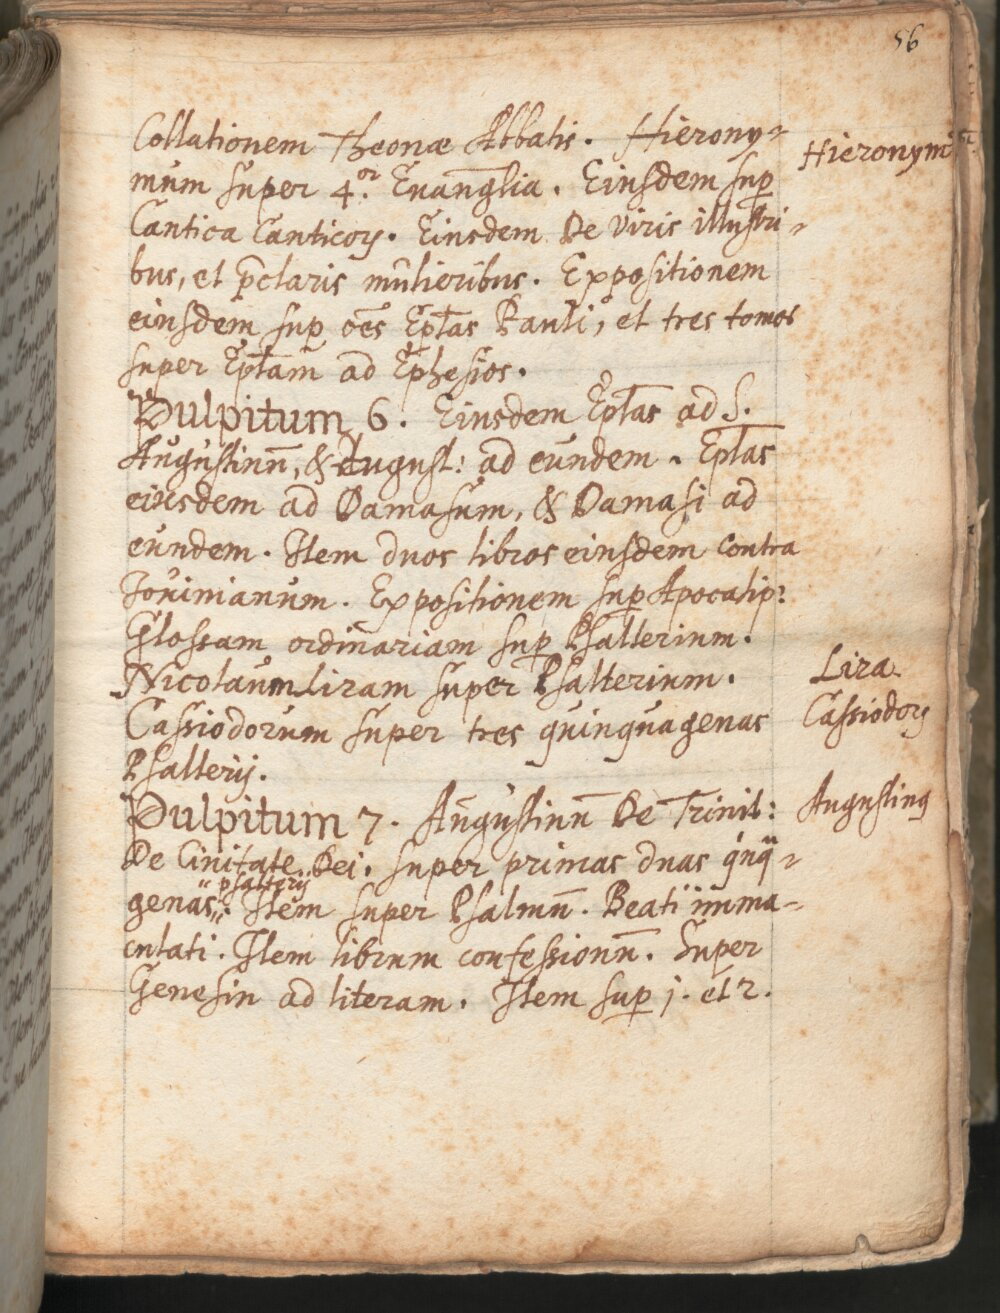 56
Collationem Theonæ Abbatis. Hierony-
Hieronym9
mum super 4.or Euang̅lia. Eiusdem sup̱
Cantica Canticoꝝ. Eiusdem De Viris illustri-
bus, et p̅claris mulieribus. Expositionem
eiusdem sup̱ oe̅s Ep̅tas Pauli, et tres tomos
super Ep̅tam ad Ephesios.
Pulpitum 6. Eiusdem Ep̅tas ad S.
Augustinu̅, & August: ad eundem. Ep̅tas
eiusdem ad Damasum, & Damasi ad
eundem. Item duos libros eiusdem contra
Iouinianum. Expositionem sup̱ Apocalip:
Glossam ordinariam sup̱ Psalterium.
Nicolaum Liram super Psalterium.
Lira
Cassiodorum super tres quinquagenas
Cassiodorꝰ
Psalterij.
Pulpitum 7. Augustinu̅ De Trinit:
Augustinꝰ
De Ciuitate Dei. super primas duas
psalterij
genas. Item super Psalmu̅. Beati imma-
culati. Item librum confessionu̅. Super
Genesin ad literam. Item sup̱ j. et 2.